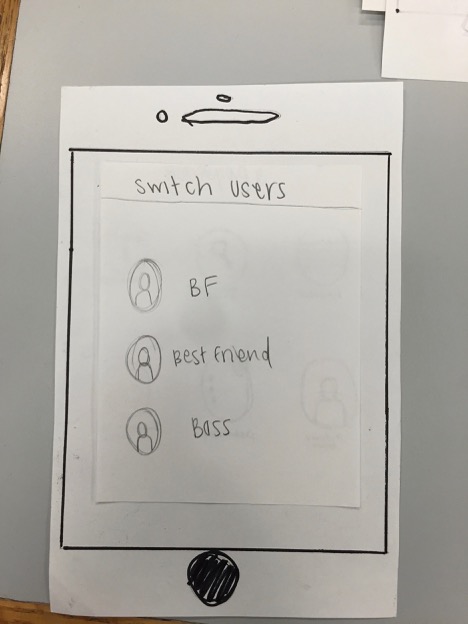 switch users
BF
Best Friend
Boss